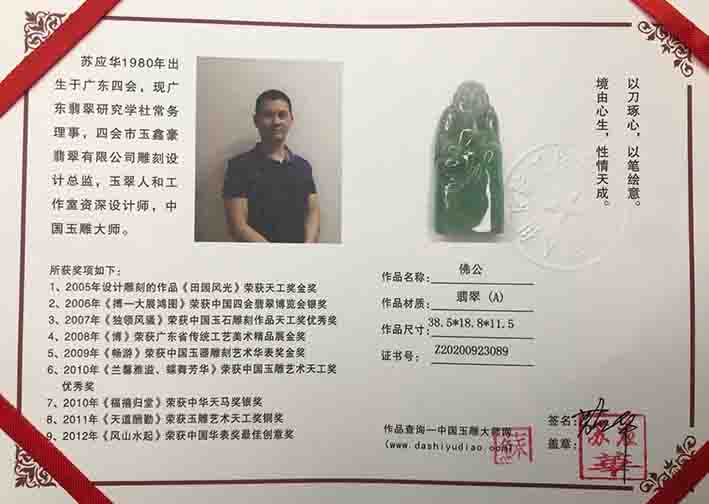 苏应华1980年出
生于广东四会，现广
东翡翠研究学社常务
理事，四会市玉鑫豪
翡翠有限公司雕刻设
计总监，玉翠人和工
作室资深设计师，中
国玉雕大师。
以刀琢心，以笔绘意。
境由心生，性情天成。
所获奖项如下：
1、2005年设计雕刻的作品《田园风光》荣获天工奖金奖
2、2006年《搏一大展鸿图》荣获中国四会翡翠博览会银奖
3、2007年《独领风骚》荣获中国玉石雕刻作品天工奖优秀奖
4、2008年《博》荣获广东省传统工艺美术精品展金奖
5、2009年《畅游》荣获中国玉器雕刻艺术华表奖金奖
6、2010年《兰馨雅溢、蝶舞芳华》荣获中国玉雕艺术天工奖
优秀奖
7、2010年《福禧归堂》荣获中华天马奖银奖
8、2011年《天道酬勤》荣获玉雕艺术天工奖铜奖
9、2012年《风山水起》荣获中国华表奖最佳创意奖
作品名称： 佛公
作品材质： 翡翠（A）
作品尺寸：38.5*18.8*11.5
证书号： Z20200923089
作品查询一中国玉雕大师网
（www.dashiyudiao.com）
签名：
盖章：